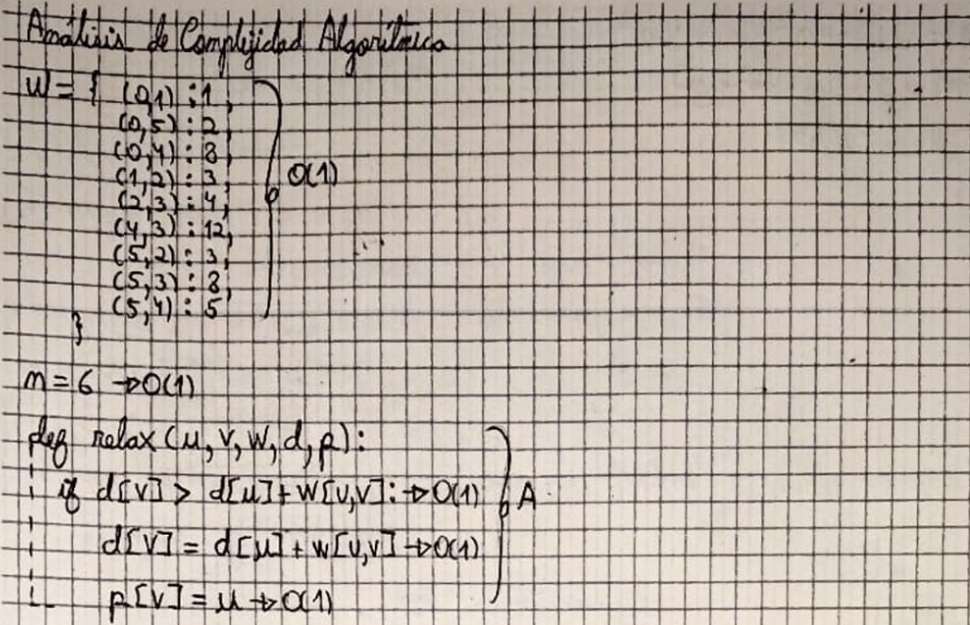 Análisis de Complejidad Algorítmica
W = { (0,1) : 1,
(0,5) : 2,
(0,4) : 8,
(1,2) : 3,
(2,3) : 4,
(4,3) : 12,
(5,2) : 3,
(5,3) : 8,
(5,4) : 5
}
O(1)
n = 6 → O(1)
def relax (u, v, w, d, p):
if d[v] > d[u] + w[u,v]: → O(1)
A
d[v] = d[u] + w[u,v] → O(1)
p[v] = u → O(1)